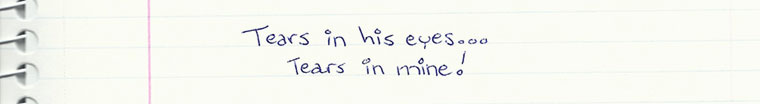 Tears in his eyes...
Tears in mine!